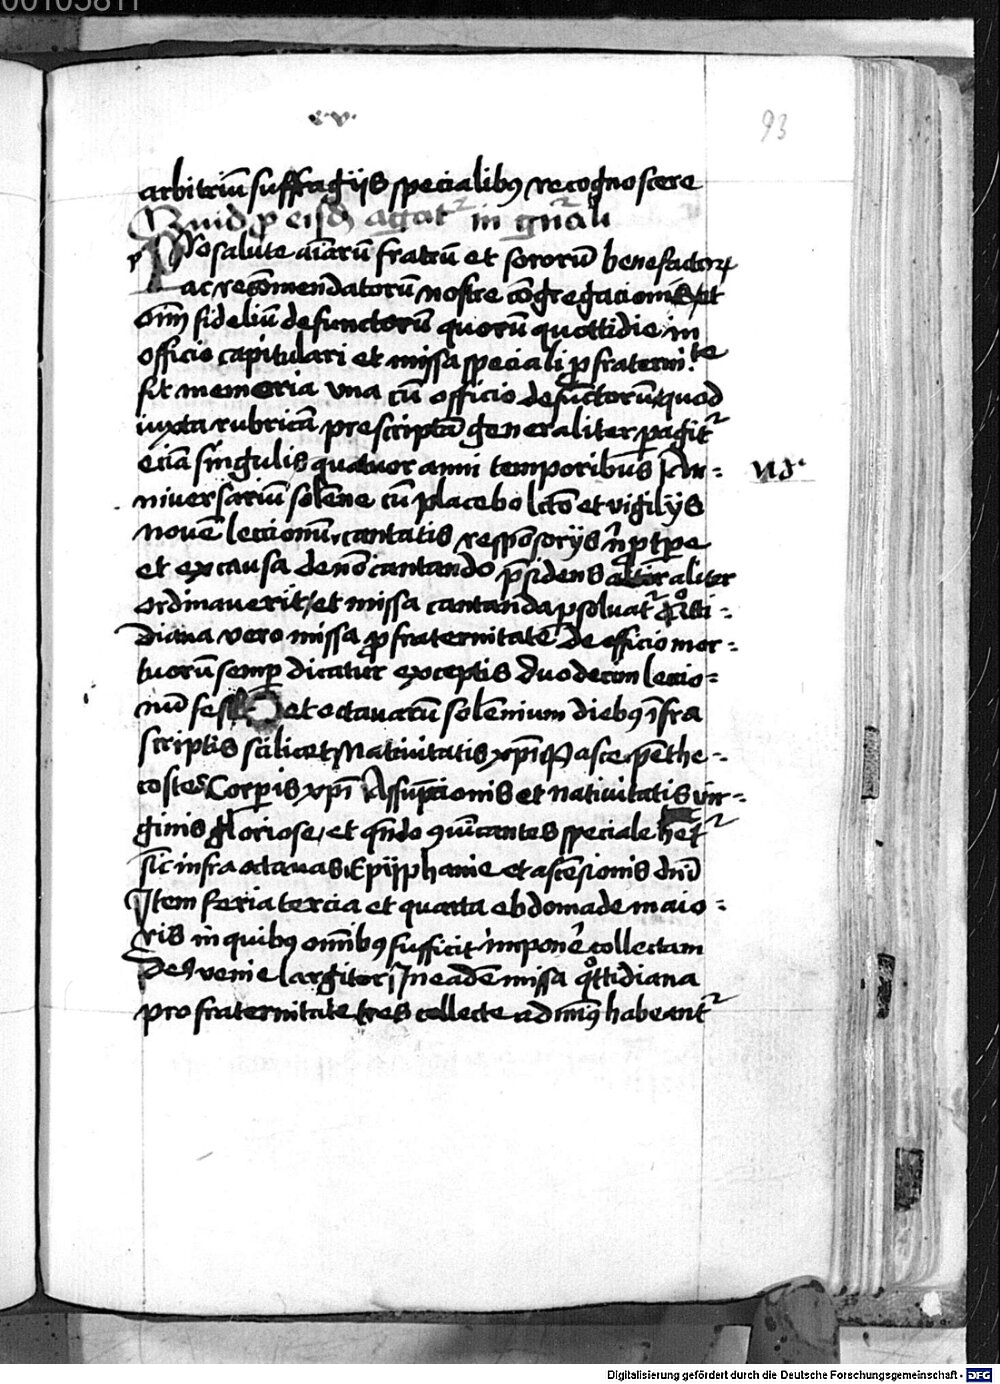 00103811
xv
93
arbitriũ suffragijs specialibꝯ recognoscere
Quid ꝓ eisdē agat᷑ in gn̄ali
p Pro salute aĩarũ fratrũ et sororũ benefactoꝝ
ac recõmendatorũ nostre cõgregacionis et
oĩm fideliũ defunctorũ quorũ quottidie in
officio capitulari et missa speciali ꝓ fraternite
fit memoria vna cũ officio defũctorũ quod
iuxta rubricã prescriptã generaliter pagit᷑
eciã singulis quatuor anni temporibus An-
niversariũ solẽne cũ placebo lctõ et vigilijs
novẽ leccionũ cantatis respõsorijs
et ex causa de nõ cantando p̃sidens aliter
ordinaverit / et missa cantanda psoluat᷑ Qͦtti-
diana vero missa ꝓ fraternitate De officio mor-
tuorũ semp dicatur exceptis duodecim leccio-
nũ fest et octavarũ solẽnium diebꝯ ĩfra
scriptis scilicet Nativitatis xp̃i Pasce pẽthe-
costes Corporis xp̃i Assũpcionis et nativitatis vir-
ginis gloriose / et qñdo ꝯuiuantes speciale het᷑
sic infra octavas Epijphanie et ascẽsionis dn̄i
Item feria tercia et quarta ebdomade maio-
ris in quibꝯ omnibꝯ sufficit imponẽ collectam
Deꝯ venie largitor In eadẽ missa qͦttidiana
pro fraternitate tres collecte ad minꝯ habeant᷑
Digitalisierung gefördert durch die Deutsche Forschungsgemeinschaft - DFG